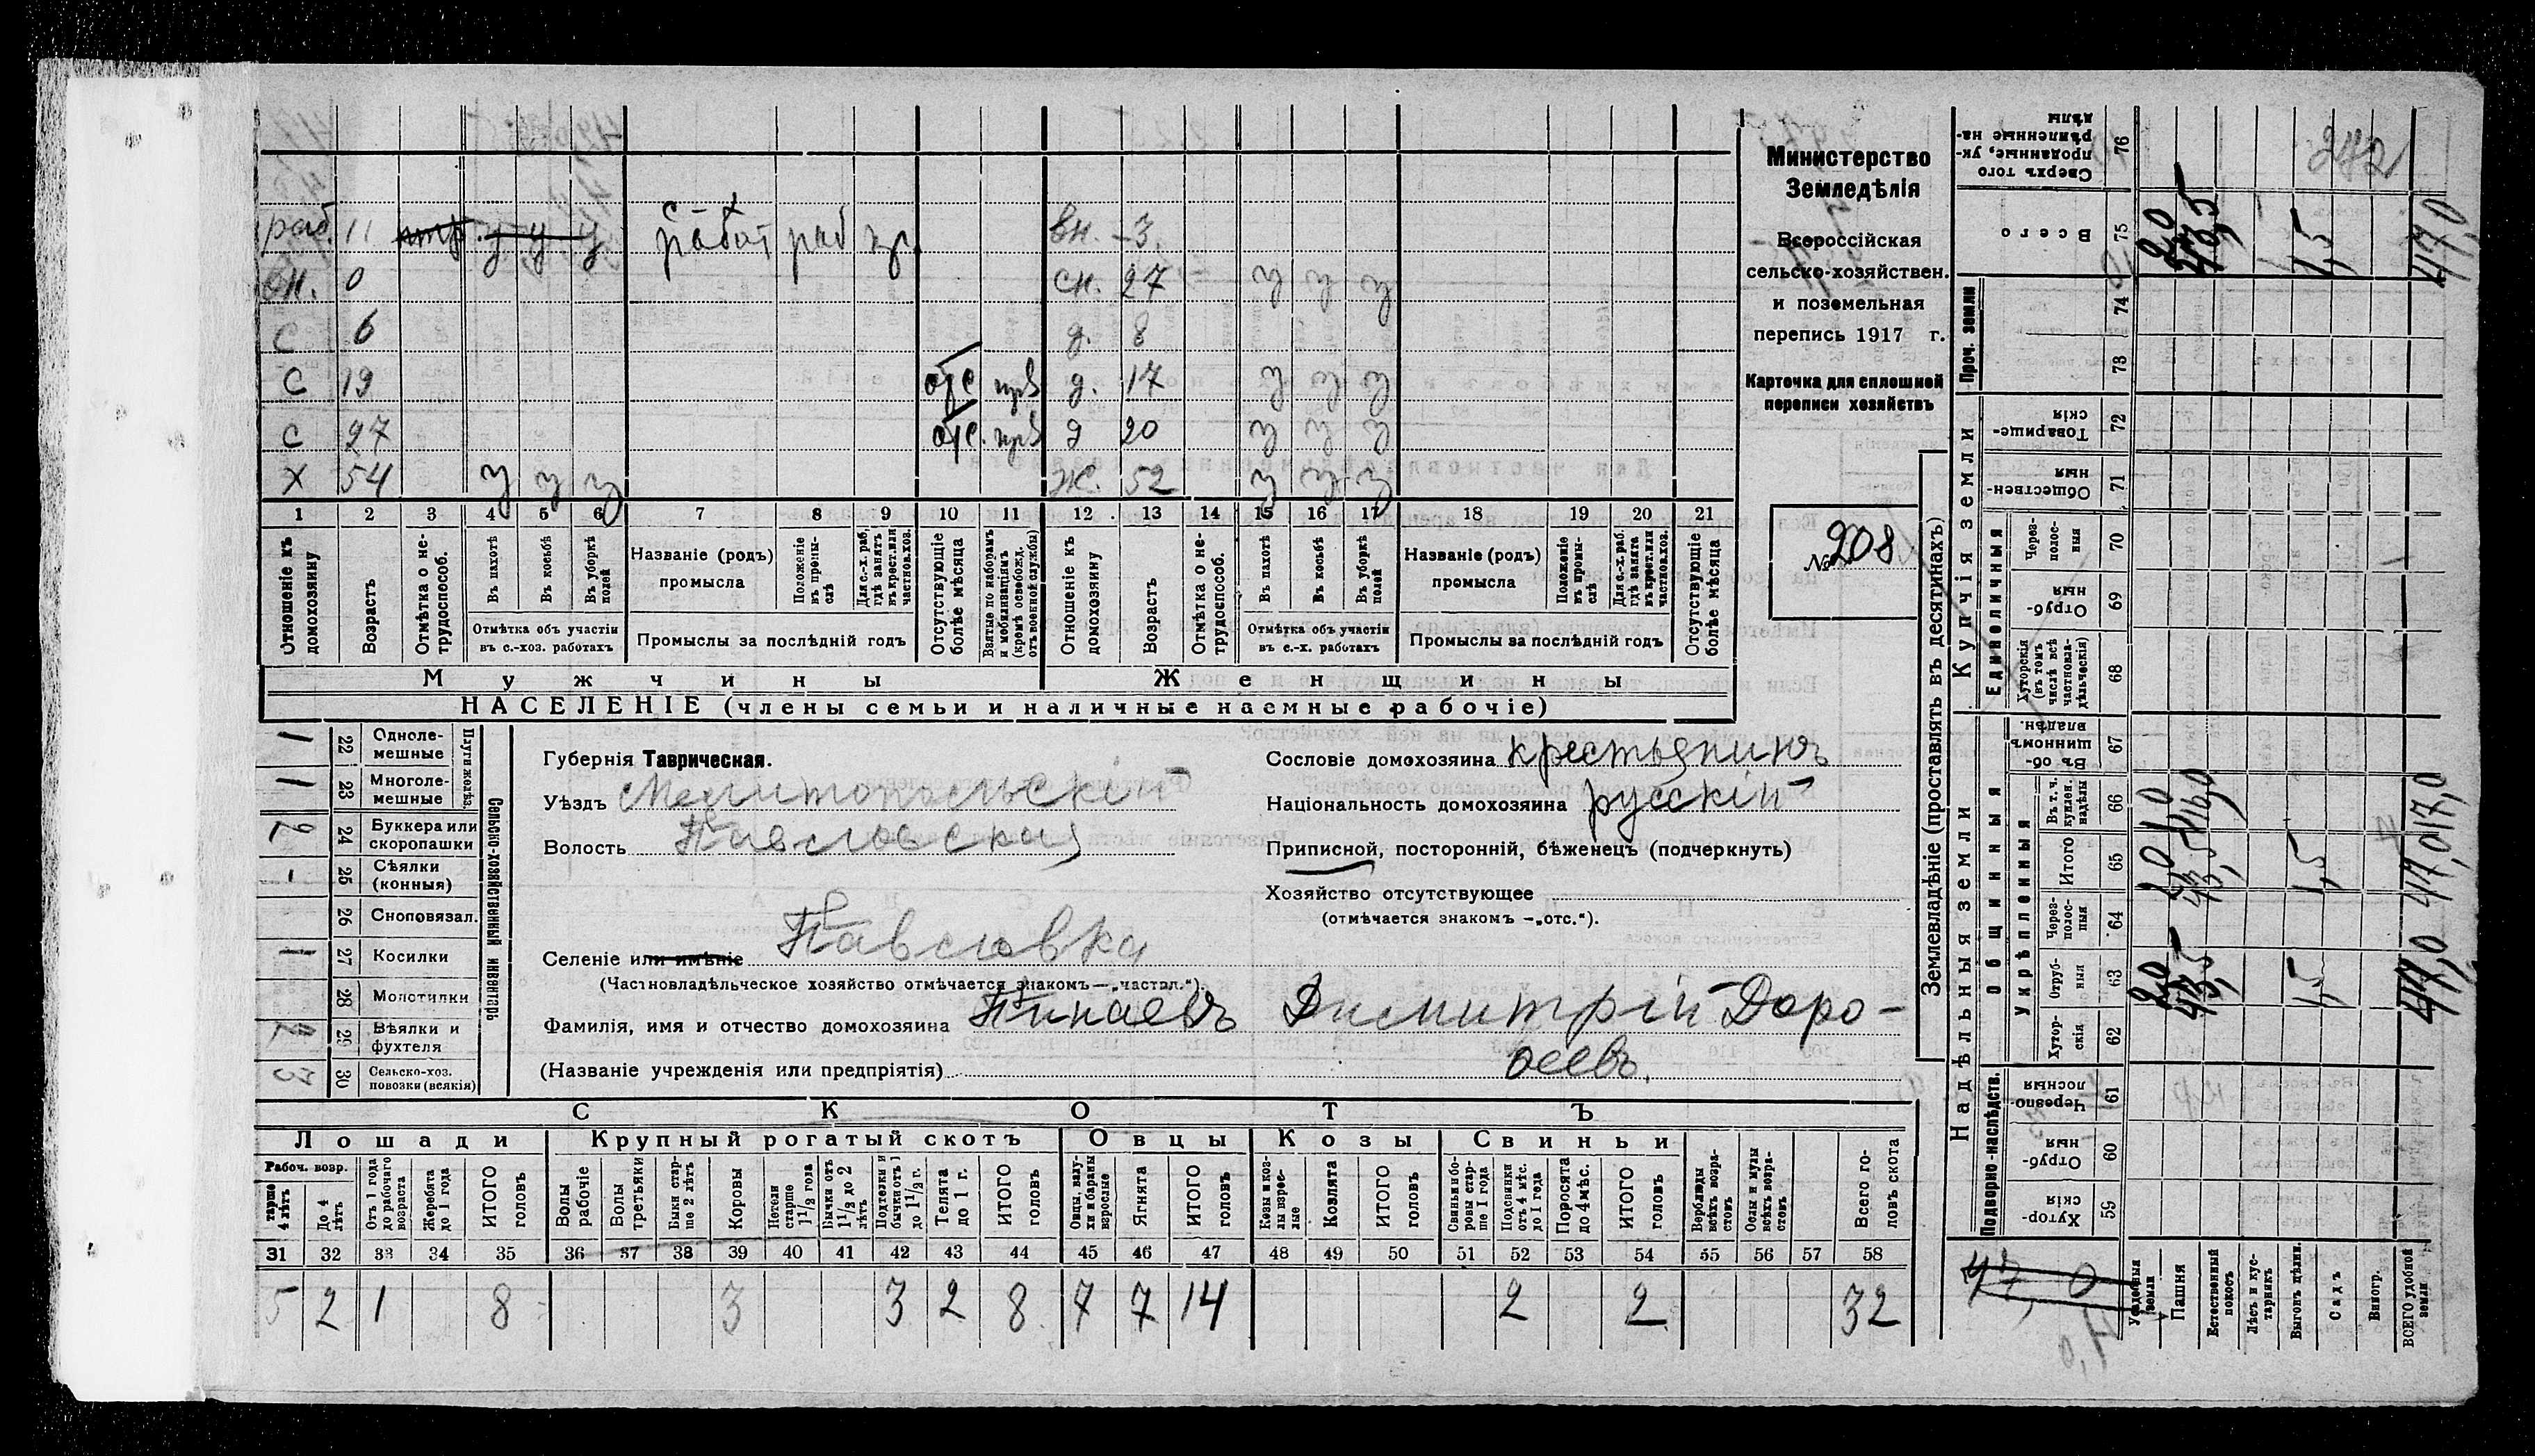 раб. 11 у у у с-х работ раб кр. вн. 3
вн. 0 сн. 27 у у у
С 6 д. 8
С 19 отс приз д. 17 у у у
С 27 отс. приз д 20 у у у
Х 54 у у у Ж. 52 у у у
1 2 3 4 5 6 7 8 9 10 11 12 13 14 15 16 17 18 19 20 21
Отношеніе къ домохозяину
Возрастъ
Отмѣтка о не-трудоспособ.
Въ пахотѣ
Въ косьбѣ
Въ уборкѣ полей
Отмѣтка объ участіи
въ с.-хоз. работахъ
Названіе (родъ)
промысла
Положеніе въ промы-слѣ
Для с.-х. раб. гдѣ занятъ въ крест. или частнов. хоз.
Промыслы за послѣдній годъ
Отсутствующіе болѣе мѣсяца
Взятые по наборамъ и мобилизаціямъ (кромѣ освобожд. отъ военной службы)
Отношеніе къ домохозяину
Возрастъ
Отмѣтка о не-трудоспособ.
Въ пахотѣ
Въ косьбѣ
Въ уборкѣ полей
Отмѣтка объ участіи
въ с.-х. работахъ
Названіе (родъ)
промысла
Положеніе въ промы-слѣ
Для с.-х. раб. гдѣ занята въ крест. или частнов. хоз.
Промыслы за послѣдній годъ
Отсутствующіе болѣе мѣсяца
Мужчины Женщины
НАСЕЛЕНІЕ (члены семьи и наличные наемные рабочіе)
Министерство
Земледѣлія
Всероссійская
сельско-хозяйствен.
и поземельная
перепись 1917 г.
Карточка для сплошной
переписи хозяйствъ
№ 208
Сельско-хозяйственный инвентарь
Плуги желѣз.
1 22 Одноле-мешные
1 23 Многоле-мешные
2 24 Буккера или скоропашки
- 25 Сѣялки (конныя)
26 Сноповязал.
1 27 Косилки
28 Молотилки
2 29 Вѣялки и фухтеля
3 30 Сельско-хоз. повозки (всякія)
Губернія Таврическая.
Уѣздъ Мелитопольскій
Волость Павловская
Селеніе или имѣніе Павловка
(Частновладѣльческое хозяйство отмѣчается знакомъ—„частвл.“).
Сословіе домохозяина крестьянинъ
Національность домохозяина русскій
Приписной, посторонній, бѣженецъ (подчеркнуть)
Хозяйство отсутствующее
(отмѣчается знакомъ —„отс.“).
Фамилія, имя и отчество домохозяина Пинаевъ Димитрій Доро-
ѳеевъ.
(Названіе учрежденія или предпріятія)
СКОТЪ
Лошади Крупный рогатый скотъ Овцы Козы Свиньи
Рабоч. возр.
тарше 4 лѣтъ
До 4 лѣтъ
Отъ 1 года до рабочаго возраста
Жеребята до 1 года
ИТОГО головъ
Волы рабочіе
Волы третьяки
Быки стар-ше 2 лѣтъ
Коровы
Нетели старше 1 1/2 года
Бычки отъ 1 1/2 до 2 лѣтъ
Подтелки и бычки отъ 1 до 1 1/2 г.
Телята до 1 г.
ИТОГО головъ
Овцы, валу-хи и бараны взрослые
Ягнята
ИТОГО головъ
Козы и коз-лы взрос-лые
Козлята
ИТОГО головъ
Свиньи и бо-ровы стар-ше 1 года
Подсвинки отъ 4 мѣс. до 1 года
Поросята до 4 мѣс.
ИТОГО головъ
Верблюды всѣхъ возра-стовъ
Ослы и мулы всѣхъ возра-стовъ
Всего го-ловъ скота
31 32 33 34 35 36 37 38 39 40 41 42 43 44 45 46 47 48 49 50 51 52 53 54 55 56 57 58
5 2 1 8 3 3 2 8 7 7 14 2 2 32
Землевладѣніе (проставлять въ десятинахъ)
Сверхъ того проданные, ук-рѣпленные на-дѣлы 76 272
Всего 75 2,0 43,5 1,5 47,0
Проч. земли 74
73
Купчія земли
Товарище-скія 72
Обществен-ныя 71
Единоличныя
Через-полос-ныя 70
Отруб-ныя 69
Хуторскія (въ томъ числѣ всѣ частновла-дѣльческія) 68
Надѣльныя земли
Общинныя
Въ об-щинномъ владѣн. 67
Укрѣпленныя
Въ т. ч. куплен. надѣлы 66 1,0 16,0 17,0
Итого 65 2,0 43,5 1,5 47,0
Через-полос-ныя 64
Отруб-ныя 63 2,0 43,5 1,5 47,0
Хутор-скія 62
Подворно-наслѣдств.
Черезпо-лосныя 61
Отруб-ныя 60
Хутор-скія 59
47,0
Усадебныя земли
Пашня
Естественный покосъ
Лѣсъ и кус-тарникъ
Выгонъ цѣлин.
Садъ
Виногр.
ВСЕГО удобной земли